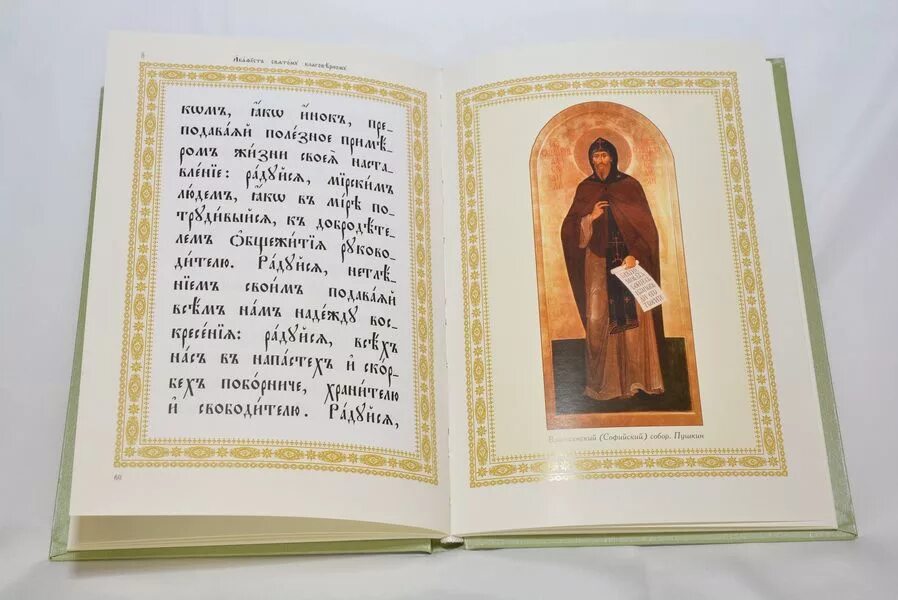 Акаѳістъ святы́мъ благовѣ́рнымъ
кѡмъ, ꙗ҆́кѡ и҆́нокъ, пре-
подава́ѧй поле́зное примѣ́-
ромъ жи́зни своеѧ̀ наста-
вле́нїе: ра́дуйсѧ, мїрски̑мъ
лю́демъ, ꙗ҆́кѡ въ мі́рѣ по-
труди́выйсѧ, къ добродѣ́те-
лемъ ѻ҆бщежи́тїѧ руково-
ди́телю. Ра́дуйсѧ, нетлѣ́-
нїемъ свои́мъ подава́ѧй
всѣ̑мъ на́мъ наде́жду вос-
кресе́нїѧ: ра́дуйсѧ, всѣ́хъ
на́съ въ напа́стехъ и҆ ско́р-
бехъ побо́рниче, храни́телю
и҆ свободи́телю. Ра́дуйсѧ,
60
(Софийский) собор. Пушкин